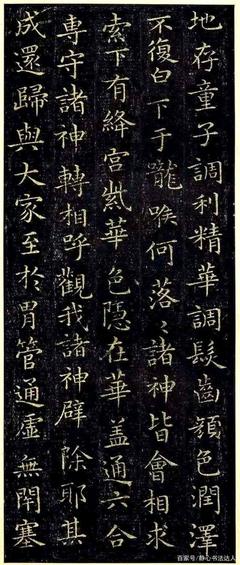 地存童子調利精華調髮齒顏色潤澤
不復白下于嚨喉何落々諸神皆會相求
索下有絳宮紫華色隱在華盖通六合
專守諸神轉相呼觀我諸神辟除耶其
成還歸與大家至於胃管通虛無閉塞
百家号/静心书法达人